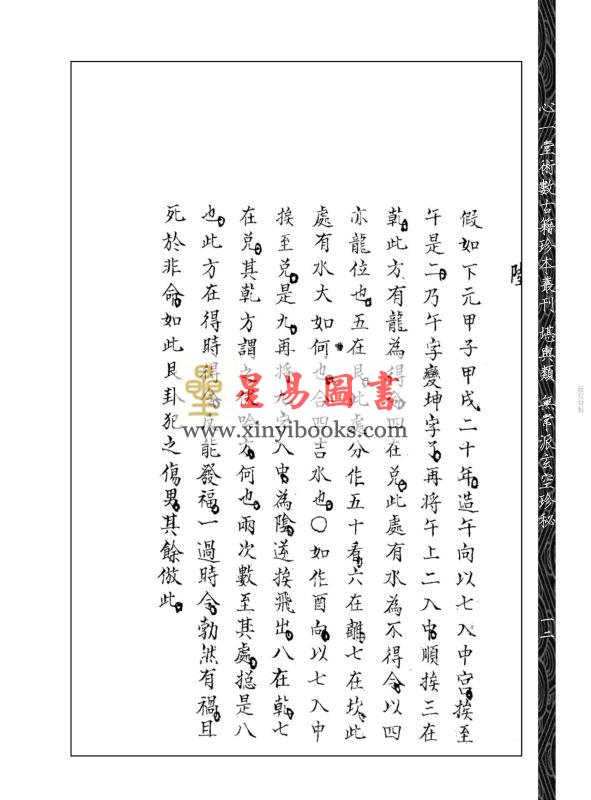 心一堂術數古籍珍本叢刊 堪輿類 無常派玄空珍秘
一二
版权材料
陸
假如下元甲子甲戌二十年造午向以七入中宮挨至
午是二乃午字變坤字了再將午上二入中順挨三在
乾此方有龍為得令四在兌此處有水為不得令以四
亦龍位也五在艮此處分作五十看六在離七在坎此
處有水大如何也合四吉水也〇如作酉向以七入中
挨至兌是九再將九字入中為陰逆挨飛出八在乾七
在兌其乾方謂之 何也兩次數至其處摠是八
也此方在得時得令 能發福一過時令勃然有禍且
死於非命如此艮卦犯之傷男其餘倣此
聖
星易圖書
www.xinyibooks.com